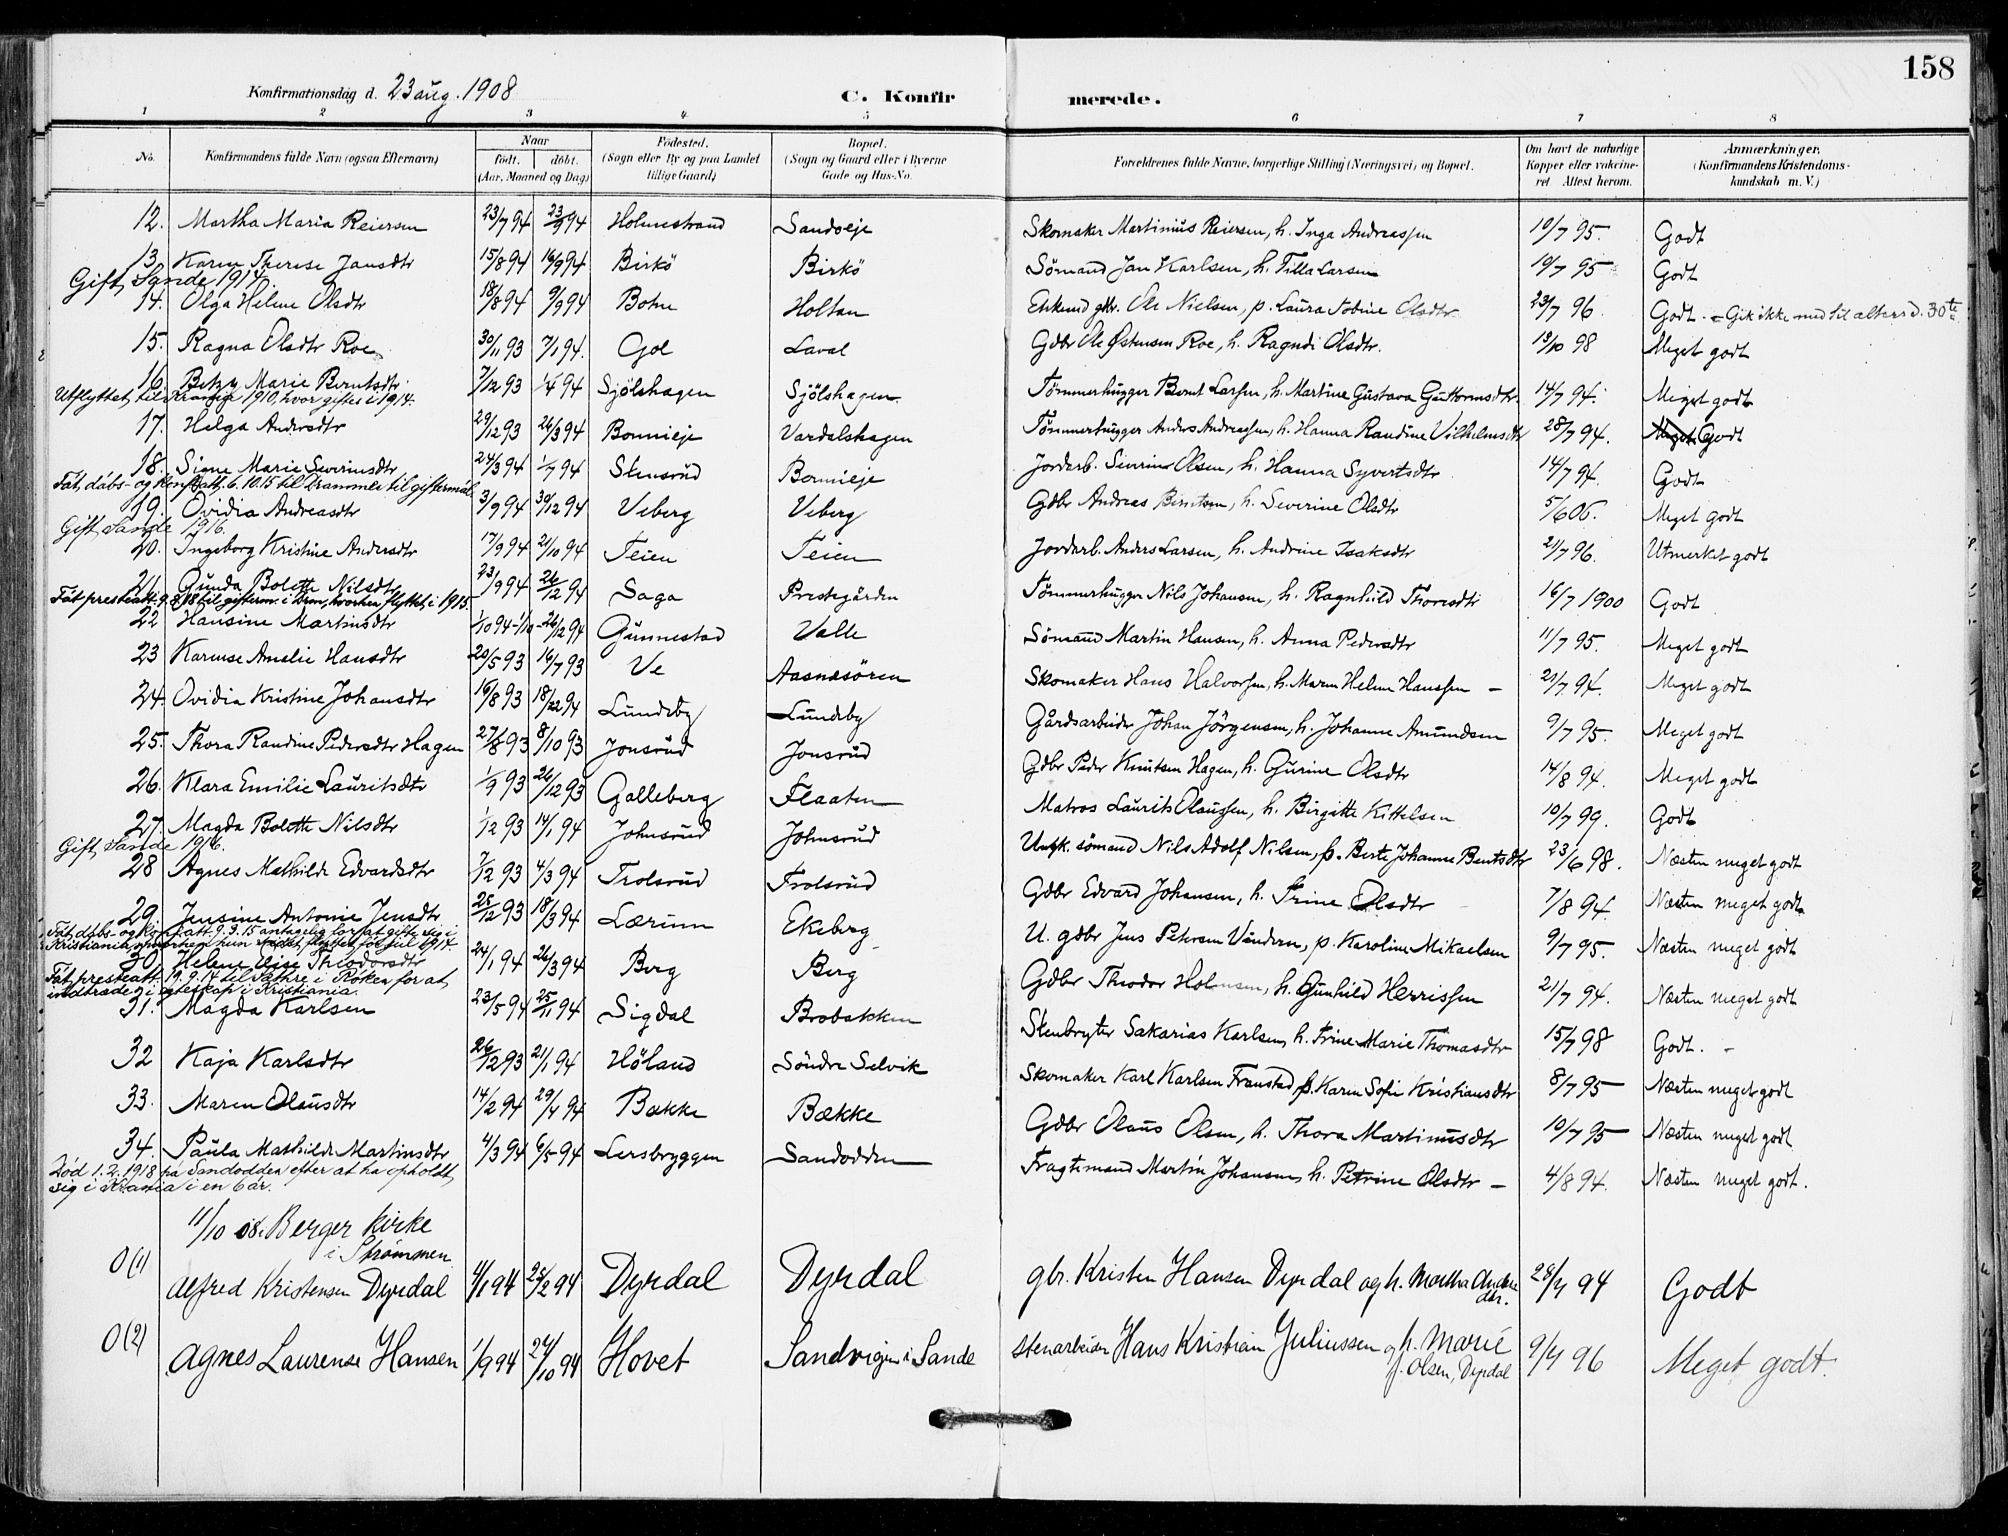 158
Konfirmationsdag d. 23 aug. 1908
C. Konfirmerede.
1 2 3 4 5 6 7 8
No. Konfirmandens fulde Navn (ogsaa Efternavn) Naar født. døbt. (Aar, Maaned og Dag) Fødested. (Sogn eller By og paa Landet tillige Gaard) Bopæl. (Sogn og Gaard eller i Byerne Gade og Hus-No. Forældrenes fulde Navne, borgerlige Stilling (Næringsvei) og Bopæl. Om havt de naturlige Kopper eller vakcineret. Attest herom. Anmærkninger. (Konfirmandens Kristendomskundskab m. V.)
12. Martha Maria Reiersen 23/7 94 23/9 94 Holmestrand Sandveje Skomaker Martinius Reiersen, h. Inga Andreassen 10/7 95. Godt
13. Karen Therese Jansdtr 15/8 94 16/9 94 Birkö Birkö Sömand Jan Karlsen, h. Tilla Larsen 10/7 95 Godt
Gift, Sande 1914.
14. Olga Helene Olsdtr 18/8 94 9/9 94 Bohn Holtan Enkemd gbr. Ole Nielsen, p. Laura Tobine Olsdtr 23/7 96 Godt. - Gik ikke med til alters d. 30te
15. Ragna Olsdtr Roe 30/11 93 7/1 94. Gol Laval Gdbr Ole Østensen Roe, h. Ragndi Olsdtr. 13/10 98 Meget godt
16. Betzy Marie Berntsdtr 7/12 93 1/4 94 Sjölshagen Sjölshagen Tömmerhugger Bernt Larsen, h. Martine Gustava Guttormsdtr 14/7 94. Meget godt
Utflyttet til Krania 1910, hvor giftes i 1914.
17. Helga Andersdtr 29/12 93 26/3 94 Bonnieje Vardalshagen Tömmerhugger Anders Andreassen, h. Hanna Randine Vilhelmsdtr 28/7 94. Meget Godt
18. Signe Marie Severinsdtr 24/3 94 1/7 94 Stensrud Bonnieje Jordarb. Severin Olsen, h. Hanna Syvertsdtr 14/7 94. Godt
Fåt dåbs- og konf.att. 6.10.15 til Drammen til giftermål
19. Ovidia Andreasdtr 3/9 94 30/12 94 Veberg Veberg Gdbr Andreas Berntsen, h. Severine Olsdtr 5/6 06. Meget godt
Gift, Sande 1916.
20. Ingeborg Kristine Andersdtr 17/9 94 21/10 94 Teien Teien Jordarb. Anders Larsen, h. Andrine Isaksdtr 21/7 96. Utmerket godt
21. Gunda Bolette Nilsdtr 23/9 94 26/12 94 Saga Prestegården Tömmerhugger Nils Johansen, h. Ragnhild Thoresdtr 16/7 1900 Godt
Fåt presteatt. 9.8.18 til gifterm. i Drm, hvorhen flyttet i 1915.
22 Hansine Martinsdtr 1/10 94 26/12 94 Gunnestad Valle Sömand Martin Hansen, h. Anna Pedersdtr 11/7 95. Meget godt
23 Karense Amalie Hansdtr 20/5 93 16/7 93 Ve Aasnæsören Skomaker Hans Halvorsen, h. Maren Helene Hanssen - 21/7 94. Meget godt
24. Ovidia Kristine Johansdtr 16/8 93 18/22 94 Lundeby Lundeby Gårdsarbeider Johan Jörgensen, h. Johanne Amundsen 9/7 95. Meget godt
25. Thora Randine Pedersdtr Hagen 27/8 93 8/10 93 Jonsrud Jonsrud Gdbr Peder Knutsen Hagen, h. Gurine Olsdtr 14/8 94. Meget godt
26. Klara Emilie Lauritsdtr 1/9 93 26/12 93 Galleberg Flaaten Matros Laurits Olaussen, h. Birgitte Kittelsen 10/7 99. Godt
27. Magda Bolette Nilsdtr 1/12 93 14/1 94 Johnsrud Johnsrud Ungk. sömand Nils Adolf Nilsen, p. Berte Johanne Berntsdtr 23/6 98. Næsten meget godt
Gift, Sande 1916.
28 Agnes Mathilde Edvardsdtr 7/12 93 4/3 94 Trolsrud Trolsrud Gdbr Edvard Johansen, h. Trine Olsdtr 7/8 94 Næsten meget godt
29. Jensine Antonie Jensdtr 25/12 93 18/3 94 Lærum Ekeberg U. gdbr Jens Petersen Vindern, p. Karoline Mikaelsen 9/7 95. Næsten meget godt
Fåt dåbs- og konf.att. 9.3.15 antagelig for at gifte sig i
Kristiania, hvorhen hun flyttet för jul 1914.
30. Helene Elise Theodorsdtr 24/1 94 26/3 94 Berg Berg Gdbr Theodor Holmsen, h. Gunhild Herrissen 21/7 94. Næsten meget godt
Fåt presteatt. 19.9.14 til Såtre i Röken for at
indtræde i ægteskap i Kristiania.
31. Magda Karlsen 23/5 94 25/11 94 Sigdal Brobakken Stenbryter Sakarias Karlsen, h. Trine Marie Thomasdtr 15/7 98 Godt. -
32 Kaja Karlsdtr 26/12 93 21/1 94 Höland Söndre Selvik Skomaker Karl Karlsen Franstad, p. Karen Sofie Kristiansdtr 8/7 95 Næsten meget godt
33. Maren Olausdtr 14/2 94 29/4 94 Bække Bække Gdbr Olaus Olsen, h. Thora Martinusdtr 10/7 95 Næsten meget godt
34. Paula Mathilde Martinsdtr 4/3 94 6/5 94 Lersbryggen Sandodden Fragtemand Martin Johansen, h. Petrine Olsdtr - 4/8 94. Næsten meget godt.
Död 1.2.1918 på Sandodden efter at ha opholdt
sig i Krania i en 6 år.
11/10 08. Berger Kirke
i Strömmen
0(1) Alfred Kristensen Dyrdal 4/1 94 25/2 94 Dyrdal Dyrdal gbr. Kristen Hansen Dyrdal og h. Martha Andersdtr. 28/7 94 Godt
0(2) Agnes Laurense Hansen 1/9 94 24/10 94 Hovet Sandvigen i Sande stenarbeider Hans Kristian Juliussen og h. Marie J. Olsen, Dyrdal 9/7 96 Meget godt.